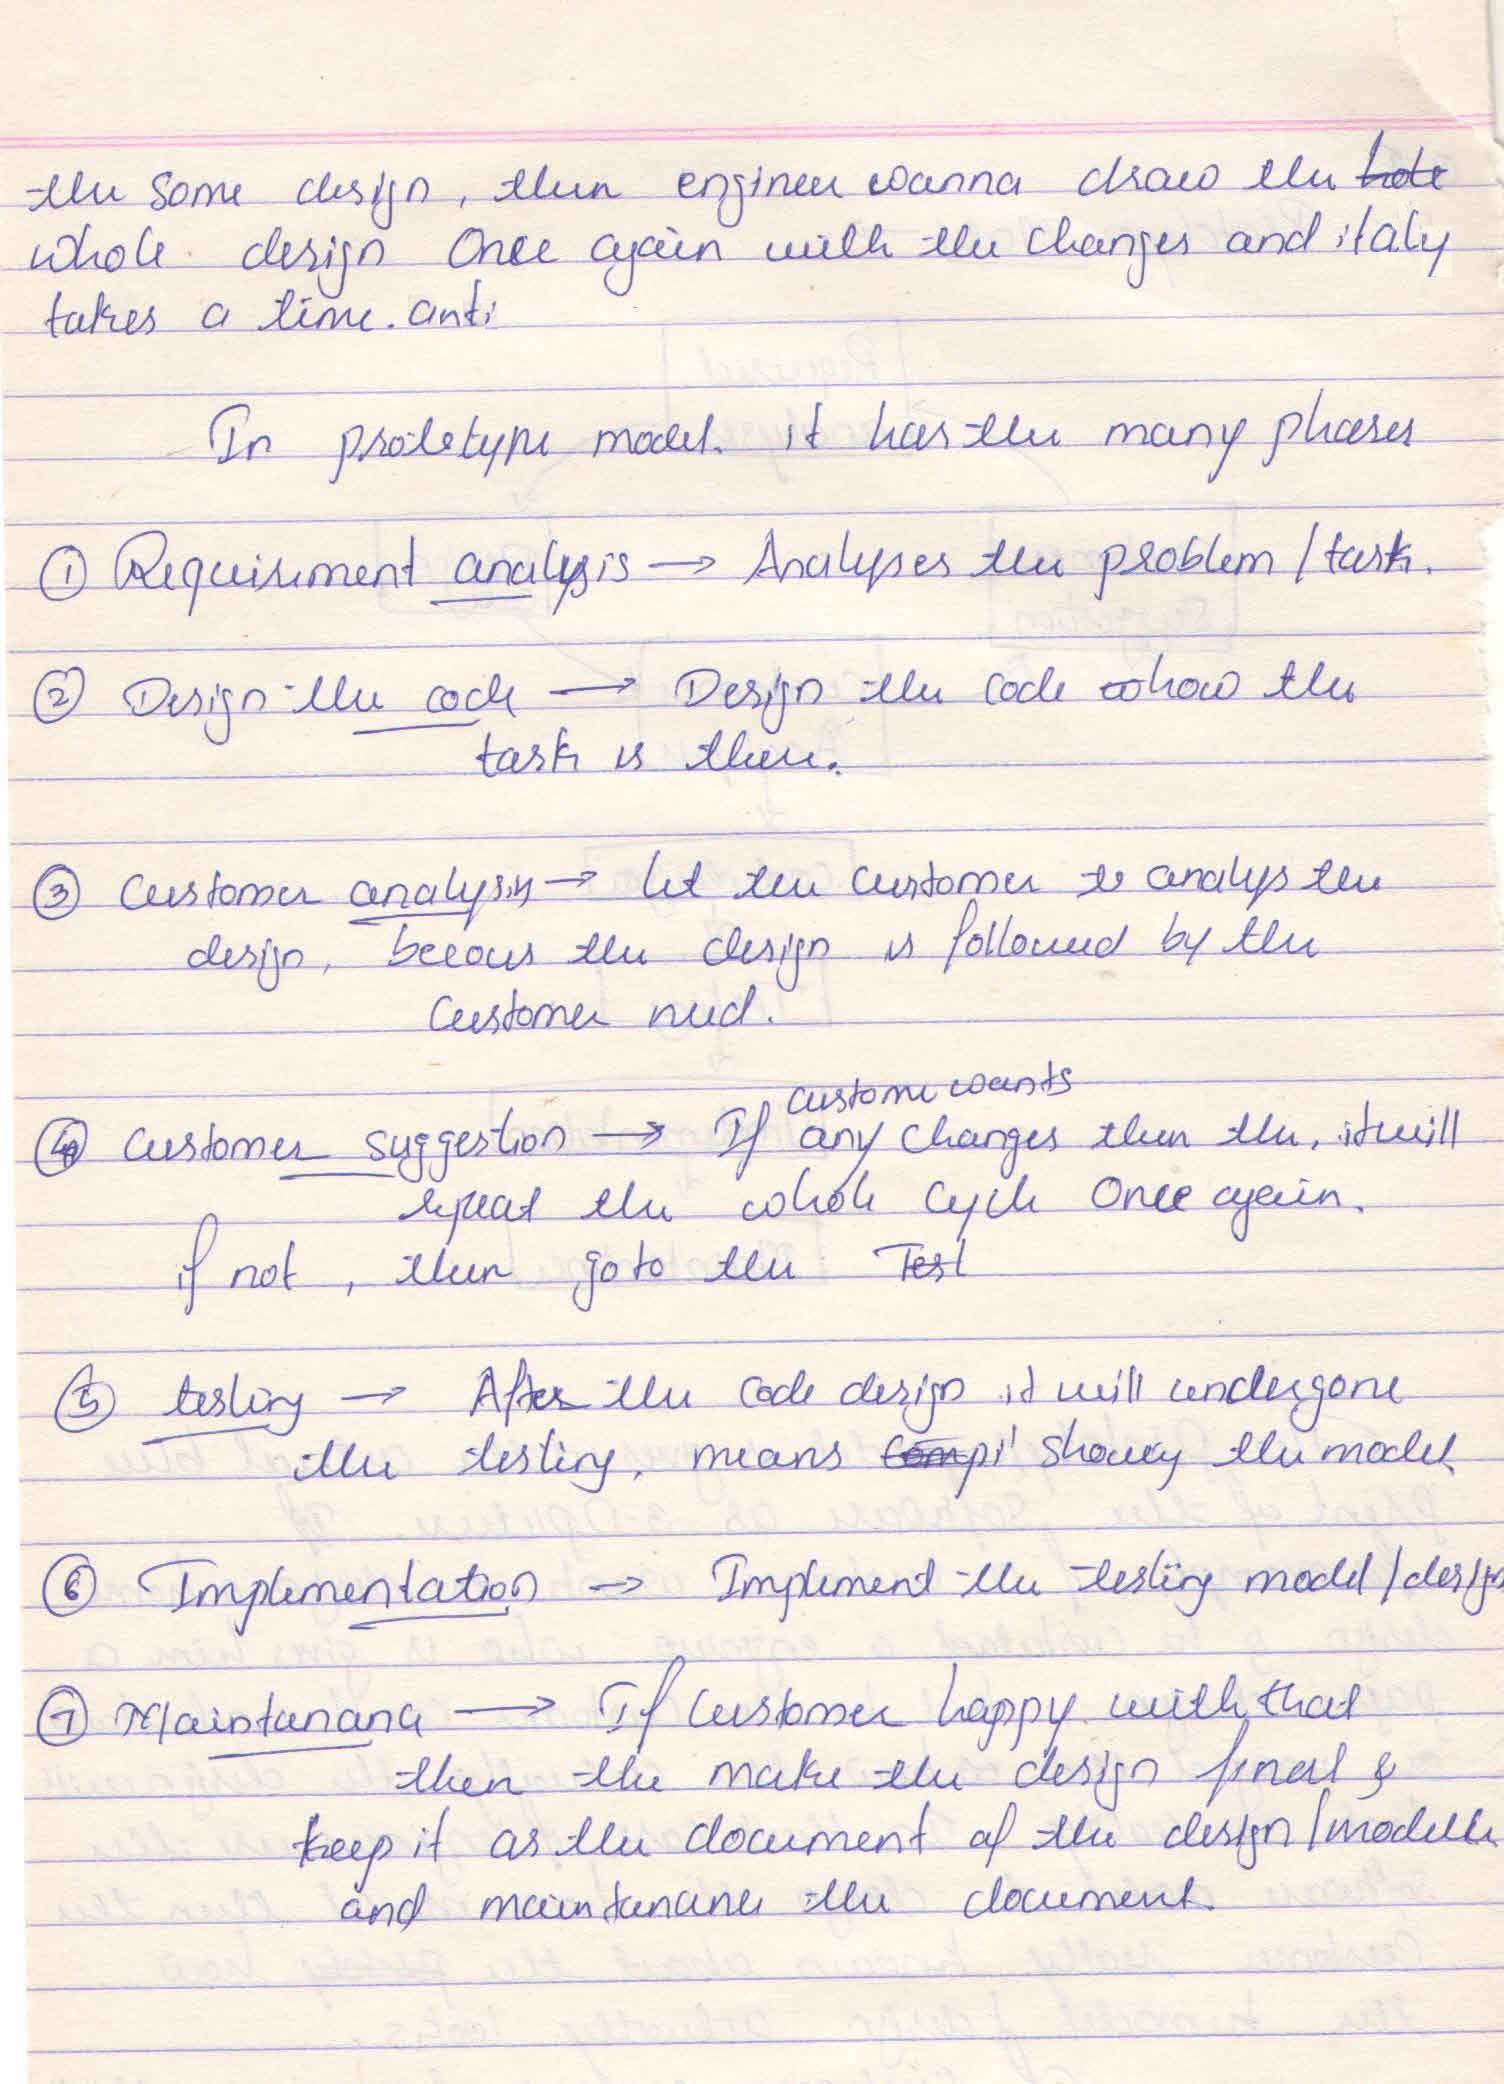 the some design, then engineer wanna draw the hole
whole design Once again with the changes and italy
takes a time. anti
In prototype model. it has the many phases
① Requirement analysis → Analyses the problem / task.
② Design the code → Design the code whow the
task is there.
③ Customer analysis → let the customer to analys the
design, becous the design is followed by the
Customer need.
customer wants
④ Customer suggestion → If any changes then the, it will
repeat the whole cycle Once again.
if not, then go to the Test
⑤ testing → After the code design it will undergone
the testing, means compi showing the model
⑥ Implementation → Implement the testing model / design
⑦ Maintanance → If customer happy with that
then the make the design final &
keep it as the document of the design / modelle
and maintanance the document.